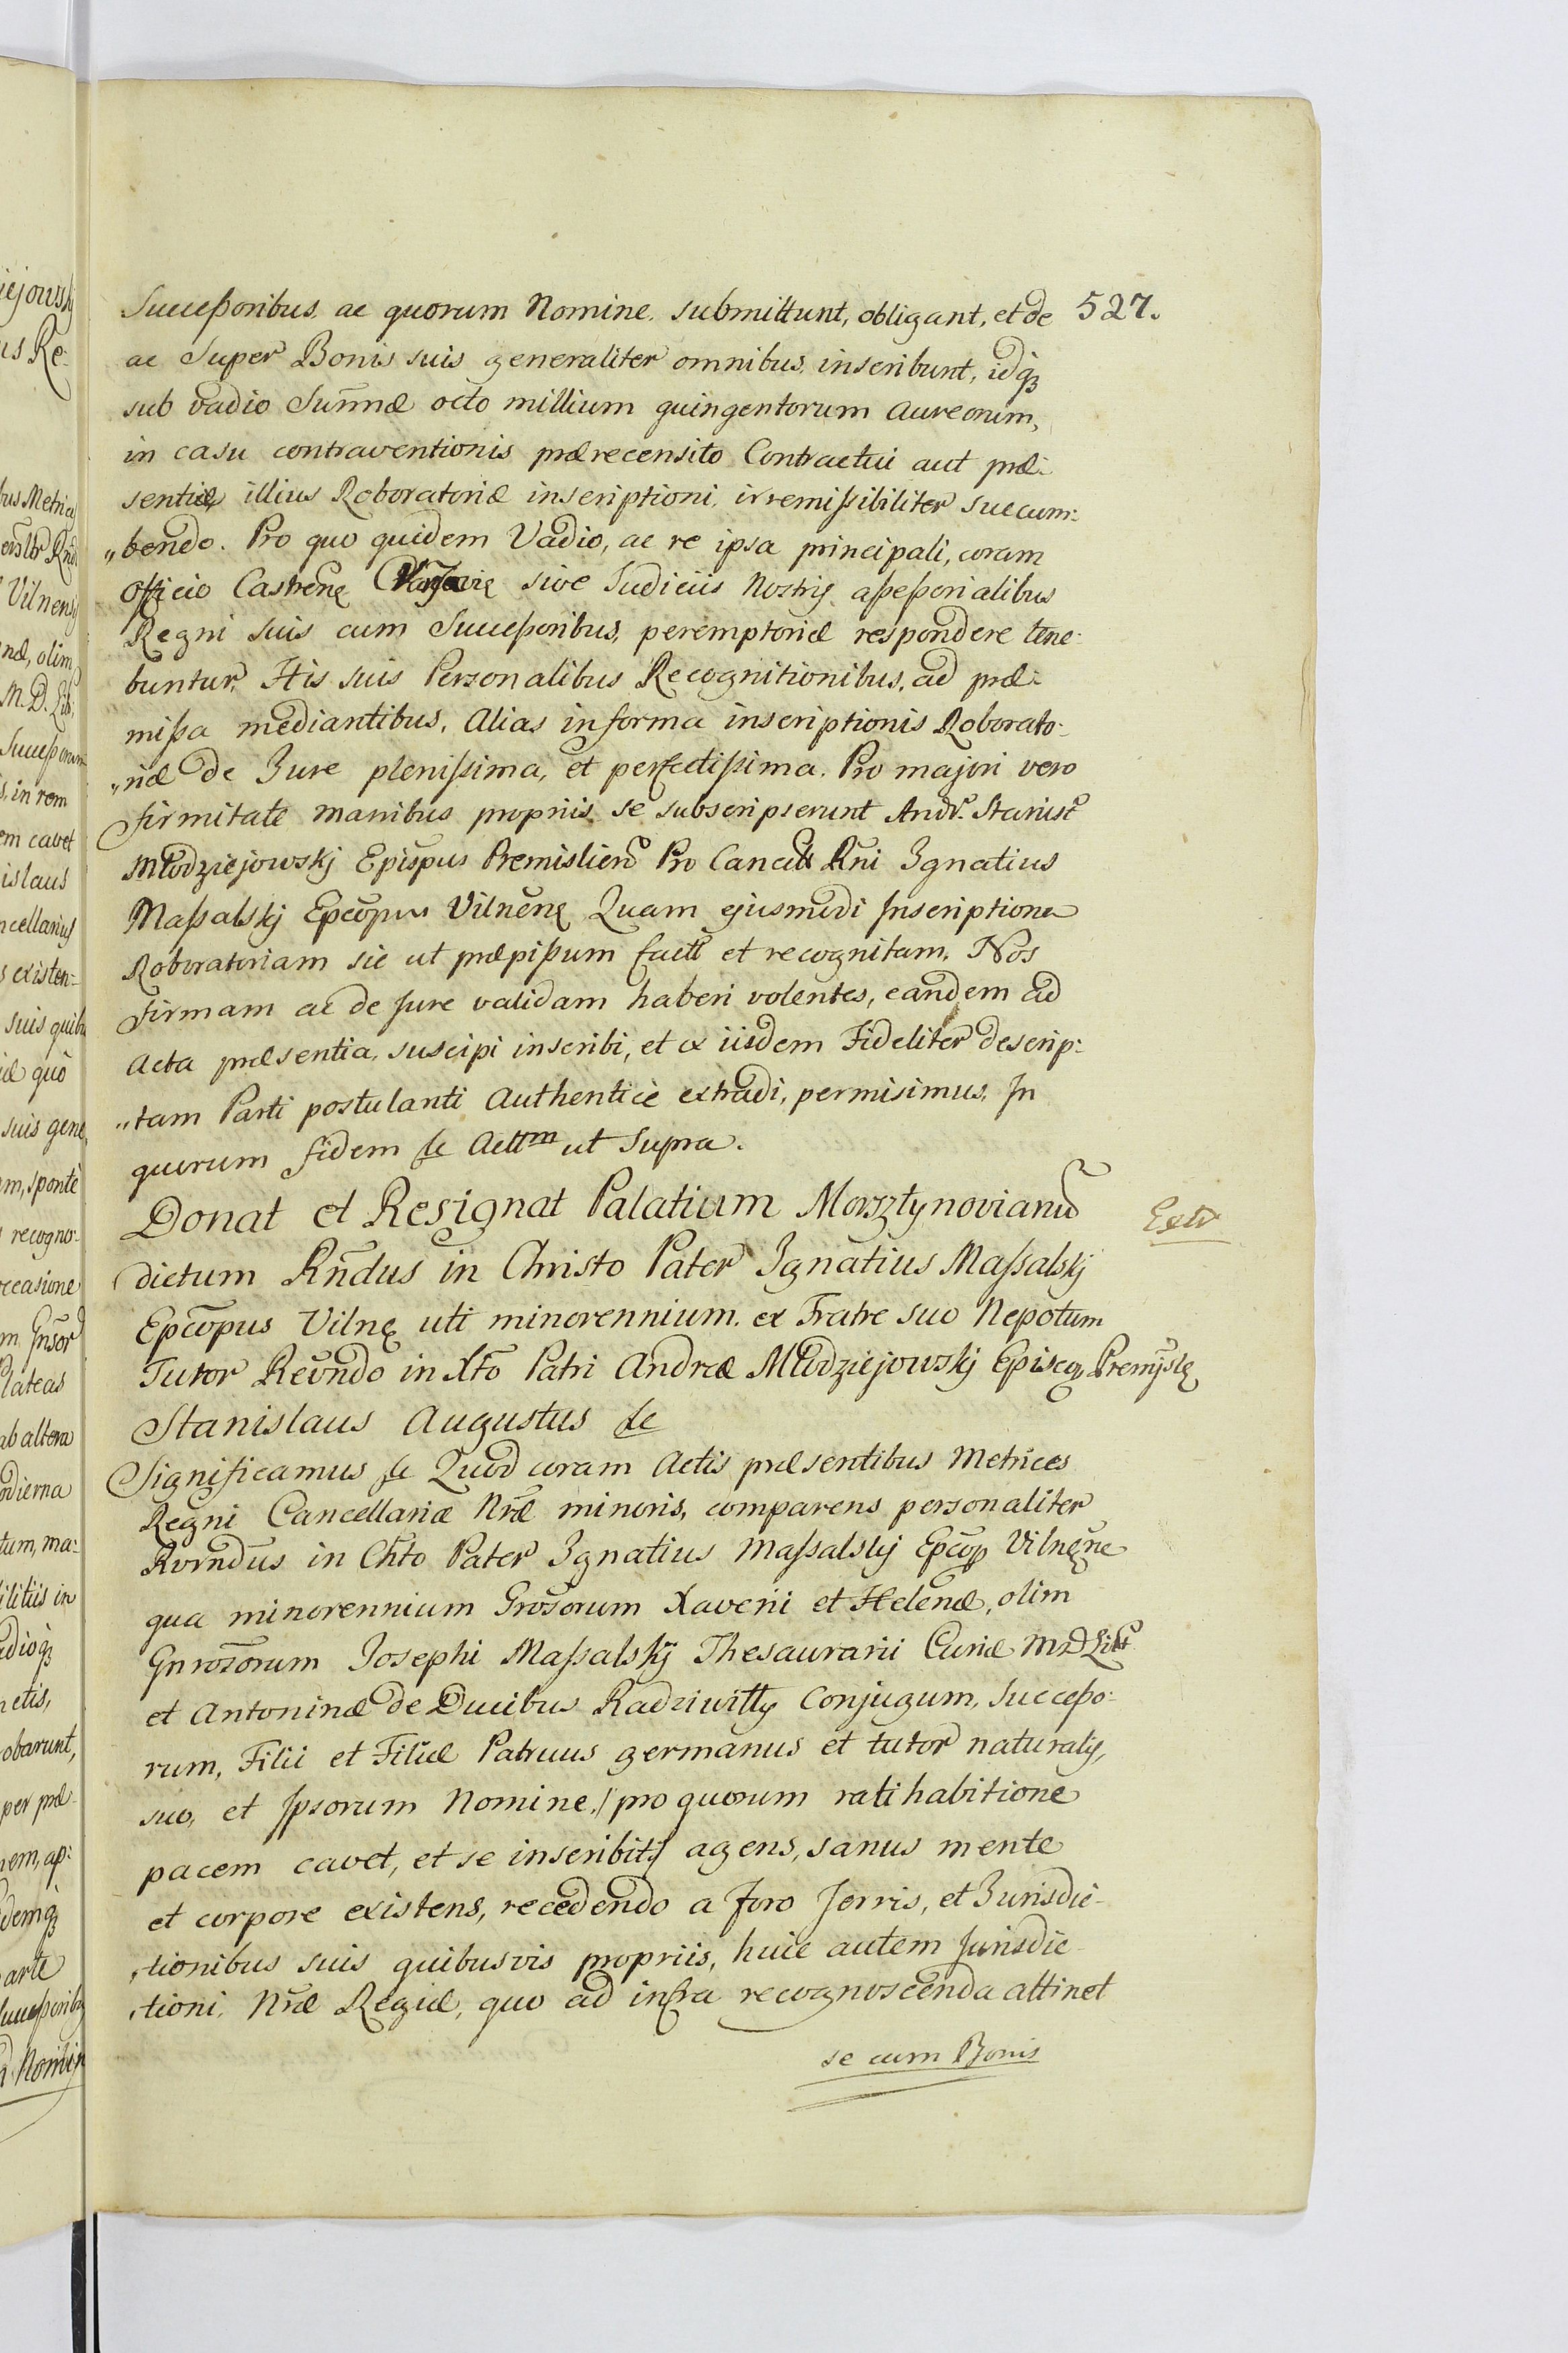 527.
Succeßoribus, ac quorum Nomine, submittunt, obligant, et de
ac Super Bonis suis generaliter omnibus, inscribunt, idqȝ
sub vadio Sum̃æ octo millium quingentorum Aureorum,
in casu contraventionis prærecensito Contractui aut præ-
sentiæ illius Roboratoriæ inscriptioni, irremißibiliter succum-
„bendo. Pro quo quidem Vadio, ac re ipsa principali, coram
Officio Castren̄ę Varsavię sive Judiciis Nostris aßeßorialibus
Regni suis cum Succeßoribus, peremptoriæ respondere tene-
buntur, His suis Personalibus Recognitionibus, ad præ-
mißa mediantibus, Alias in forma inscriptionis Roborato-
„riæ de Jure plenißima, et perfectißima. Pro majori vero
firmitate manibus propriis se subscripserunt Andr. Stanisł
Młodziejowskj Epispus Premislien Pro Cancell Rñi Ignatius
Maßalskj Epcõpus Vilnen̄ę Quam ejusmodi Inscriptione
Roboratoriam sic ut præpißum fact et recognitam, Nos
firmam ac de Jure validam haberi volentes, eandem ad
Acta præsentia, suscipi inscribi, et ex iisdem Fideliter descrip-
„tam Parti postulanti Authenticè extradi, permisimus, In
quorum fidem &c Acttm ut Supra.
Donat et Resignat Palatium Morsztynovianũ
Extr
dictum Rñdus in Christo Pater Ignatius Maßalskj
Epcõpus Vilnę uti minorennium, ex Fratre suo Nepotum
Tutor Reṽndo in Xto Patri Andreæ Młodziejowskj Episcop Premyslę
Stanislaus Augustus &c
Significamus &c Quod coram Actis præsentibus Metrices
Regni Cancellariæ Nr̃æ minoris, comparens personaliter
Rvrndus in Chto Pater Ignatius Maßalskj Epcõp Vilnęne
qua minorennium Grosorum Xaverii et Helenæ, olim
Gnrosorum Josephi Maßalskij Thesaurarii Curiæ M D Litt
et Antoninæ de Ducibus Radziwiłły Conjugum, Succeßo-
rum, Filii et Filiæ Patruus germanus et tutor naturalis,
suo, et Ipsorum Nomine, /pro quorum ratihabitione
pacem cavet, et se inscribit/ agens, sanus mente
et corpore existens, recedendo a foro Terris, et Jurisdic-
„tionibus suis quibusvis propriis, huic autem Jurisdic-
„tioni, Nr̃æ Regiæ, quo ad infra recognoscenda attinet
se cum Bonis